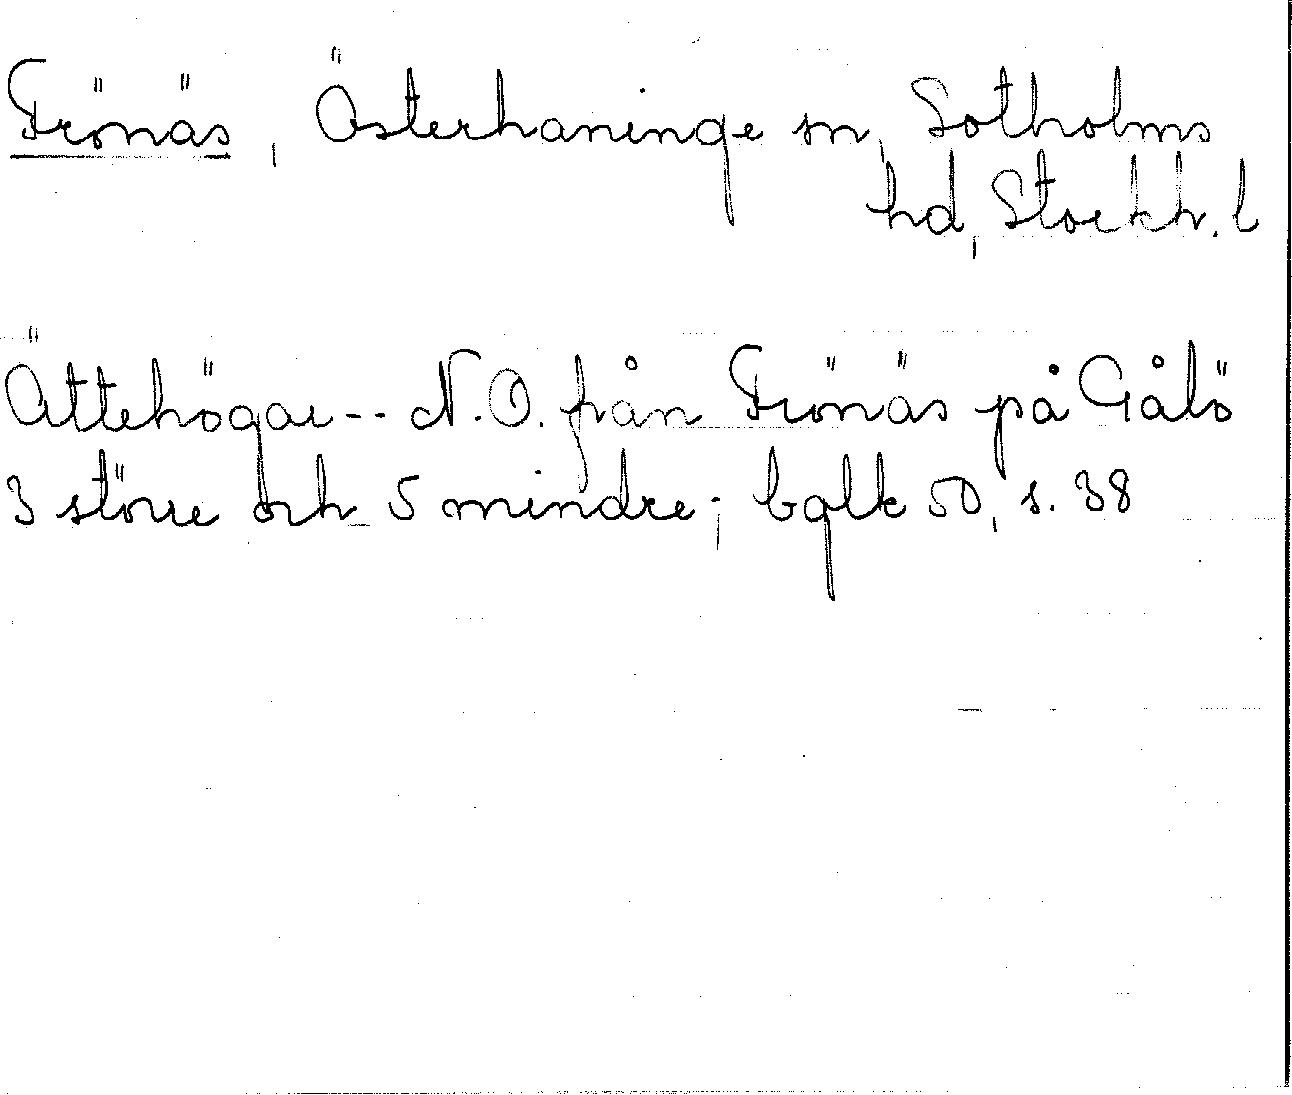 Frönäs, Österhaninge sn, Sotholms
hd, Stockh. l
Ättehögar -- N.O. från Frönäs på Gålö
3 större och 5 mindre; bqlk 50, s. 38